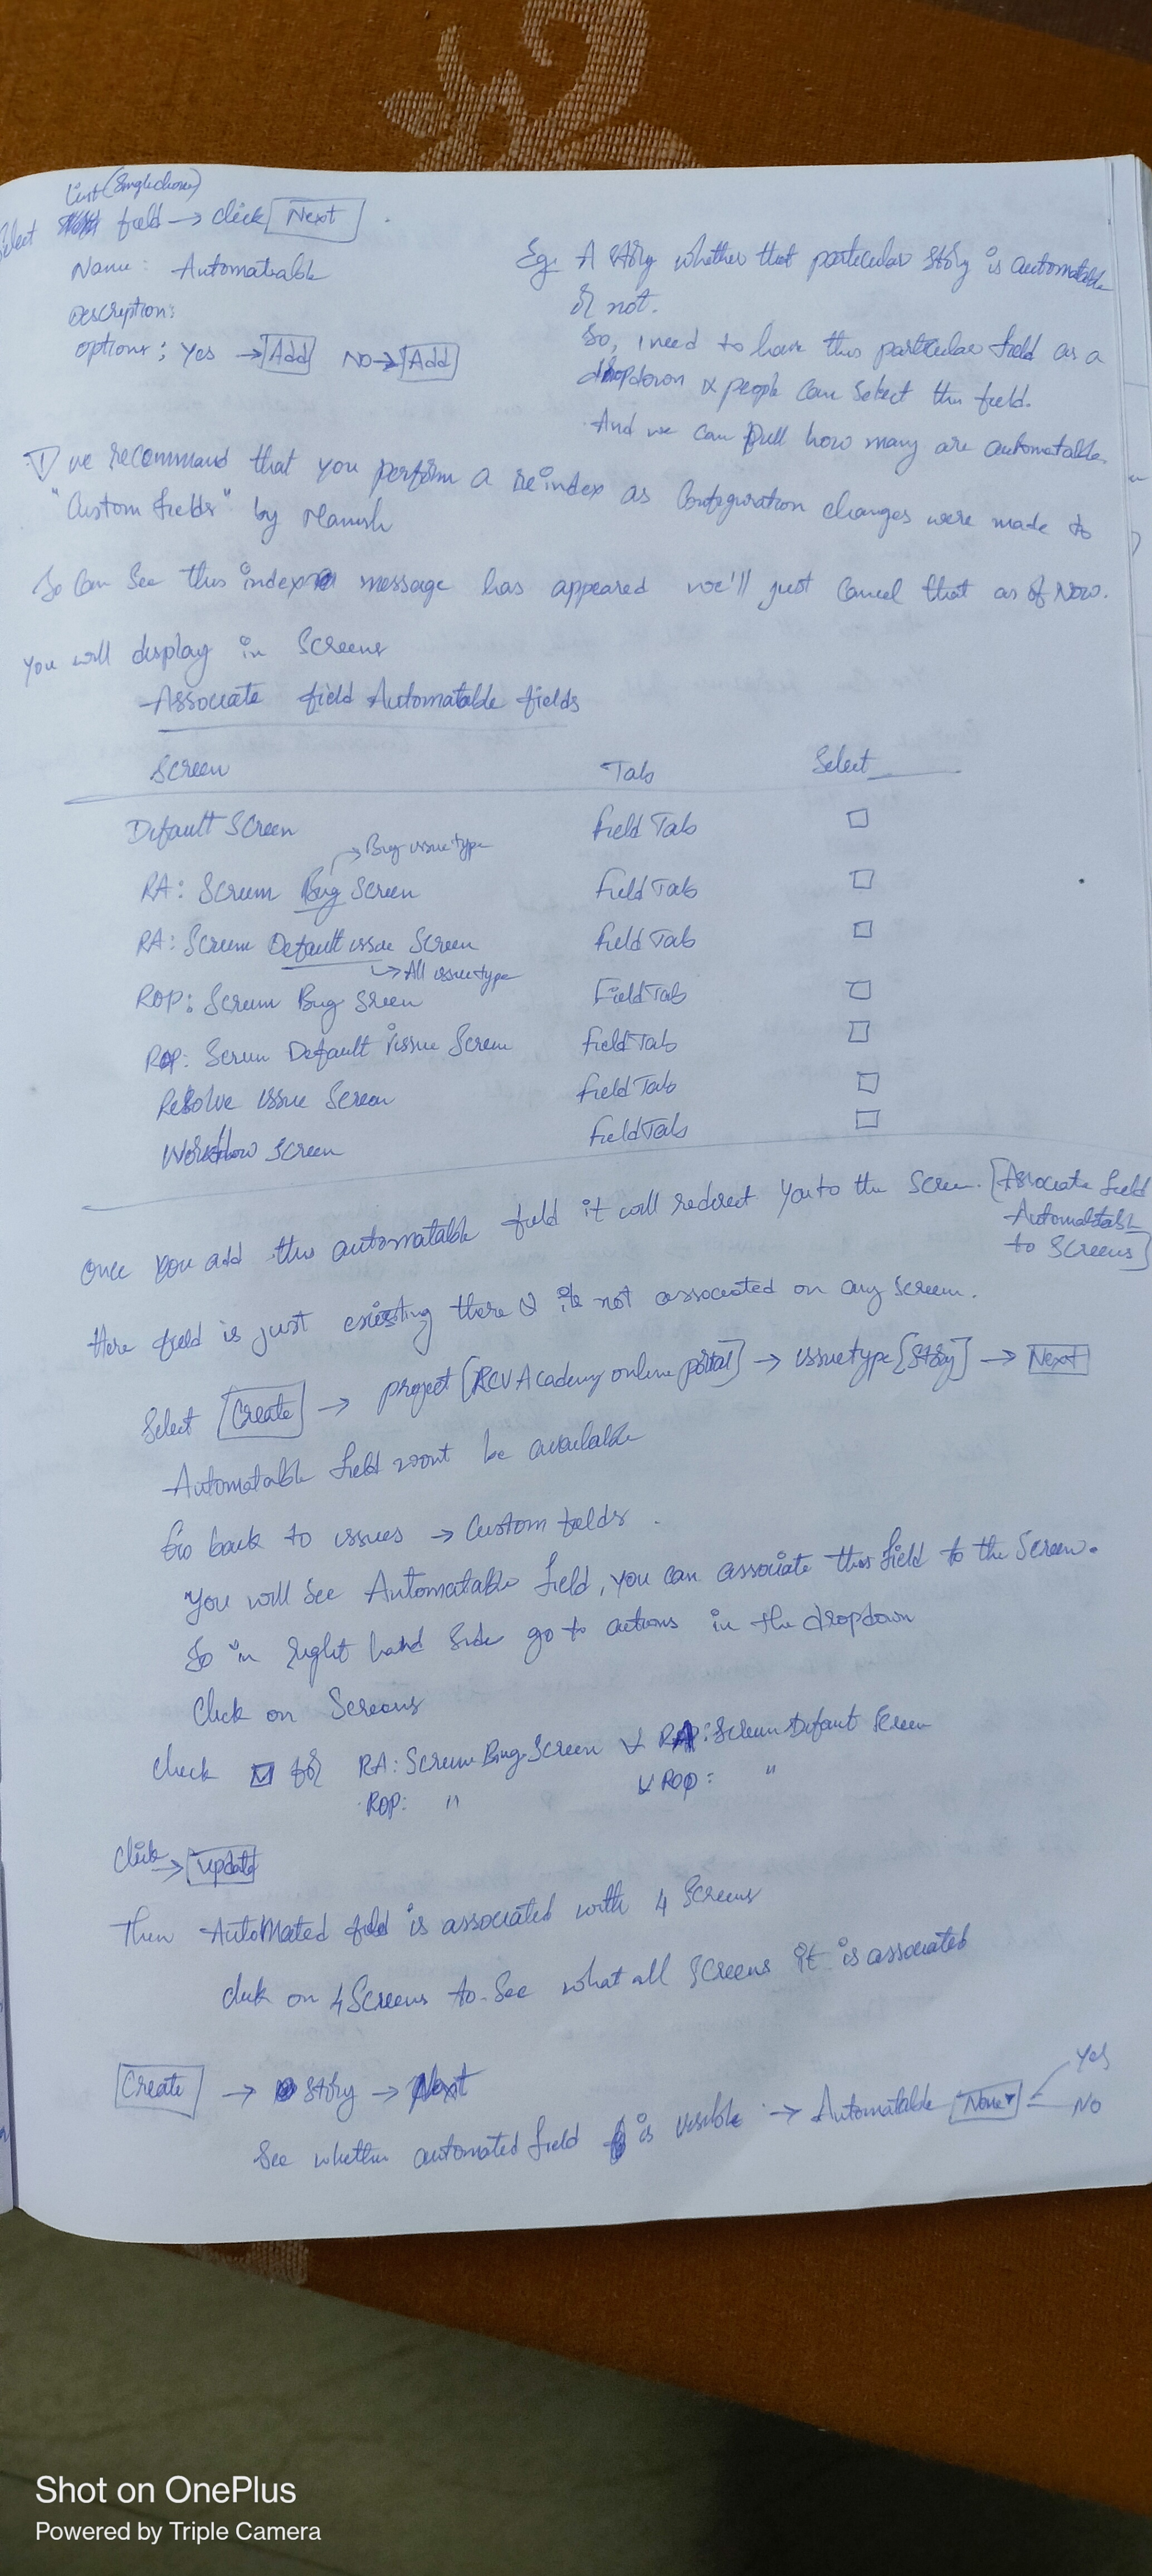 List (Single choice)
Select field → click [Next]
Name: Automatable
Description:
options; Yes → [Add] No → [Add]
Eg. A story whether that particular story is automatable
or not.
So, I need to have this particular field as a
dropdown & people can select this field.
And we can pull how many are automatable.
we recommand that you perform a reindex as Configuration changes were made to
"Custom fields" by Manish
So Can See this index message has appeared we'll just Cancel that as of Now.
You will display in Screens
Associate field Automatable fields
Screen Tab Select
Default Screen Field Tab
→ Bug issue type
RA: Scrum Bug Screen Field Tab
RA: Scrum Default issue Screen Field Tab
→ All issue type
ROP: Scrum Bug Sreen Field Tab
ROP: Scrum Default issue Screen Field Tab
Resolve issue Screen Field Tab
Workflow Screen Field Tab
Once you add this automatable field it will redirect you to the Screen. [Associate field
Automatable
to Screens]
Here field is just existing there & its not associated on any Screen.
Select [Create] → project [RCV Academy online portal] → issuetype [Story] → [Next]
Automatable field wont be available
Go back to issues → Custom fields.
You will See Automatable field, you can associate this field to the Screen.
So in right hand Side go to actions in the dropdown
Click on Screens
Check ☑ for RA: Scrum Bug Screen & RA: Scrum Default Screen
ROP: " & ROP: "
Click → [Update]
Then AutoMated field is associated with 4 Screens
click on 4 Screens to See what all Screens it is associated
[Create] → Story → Next
See whether automated field is visible → Automatable [None▾] Yes
No
Shot on OnePlus
Powered by Triple Camera